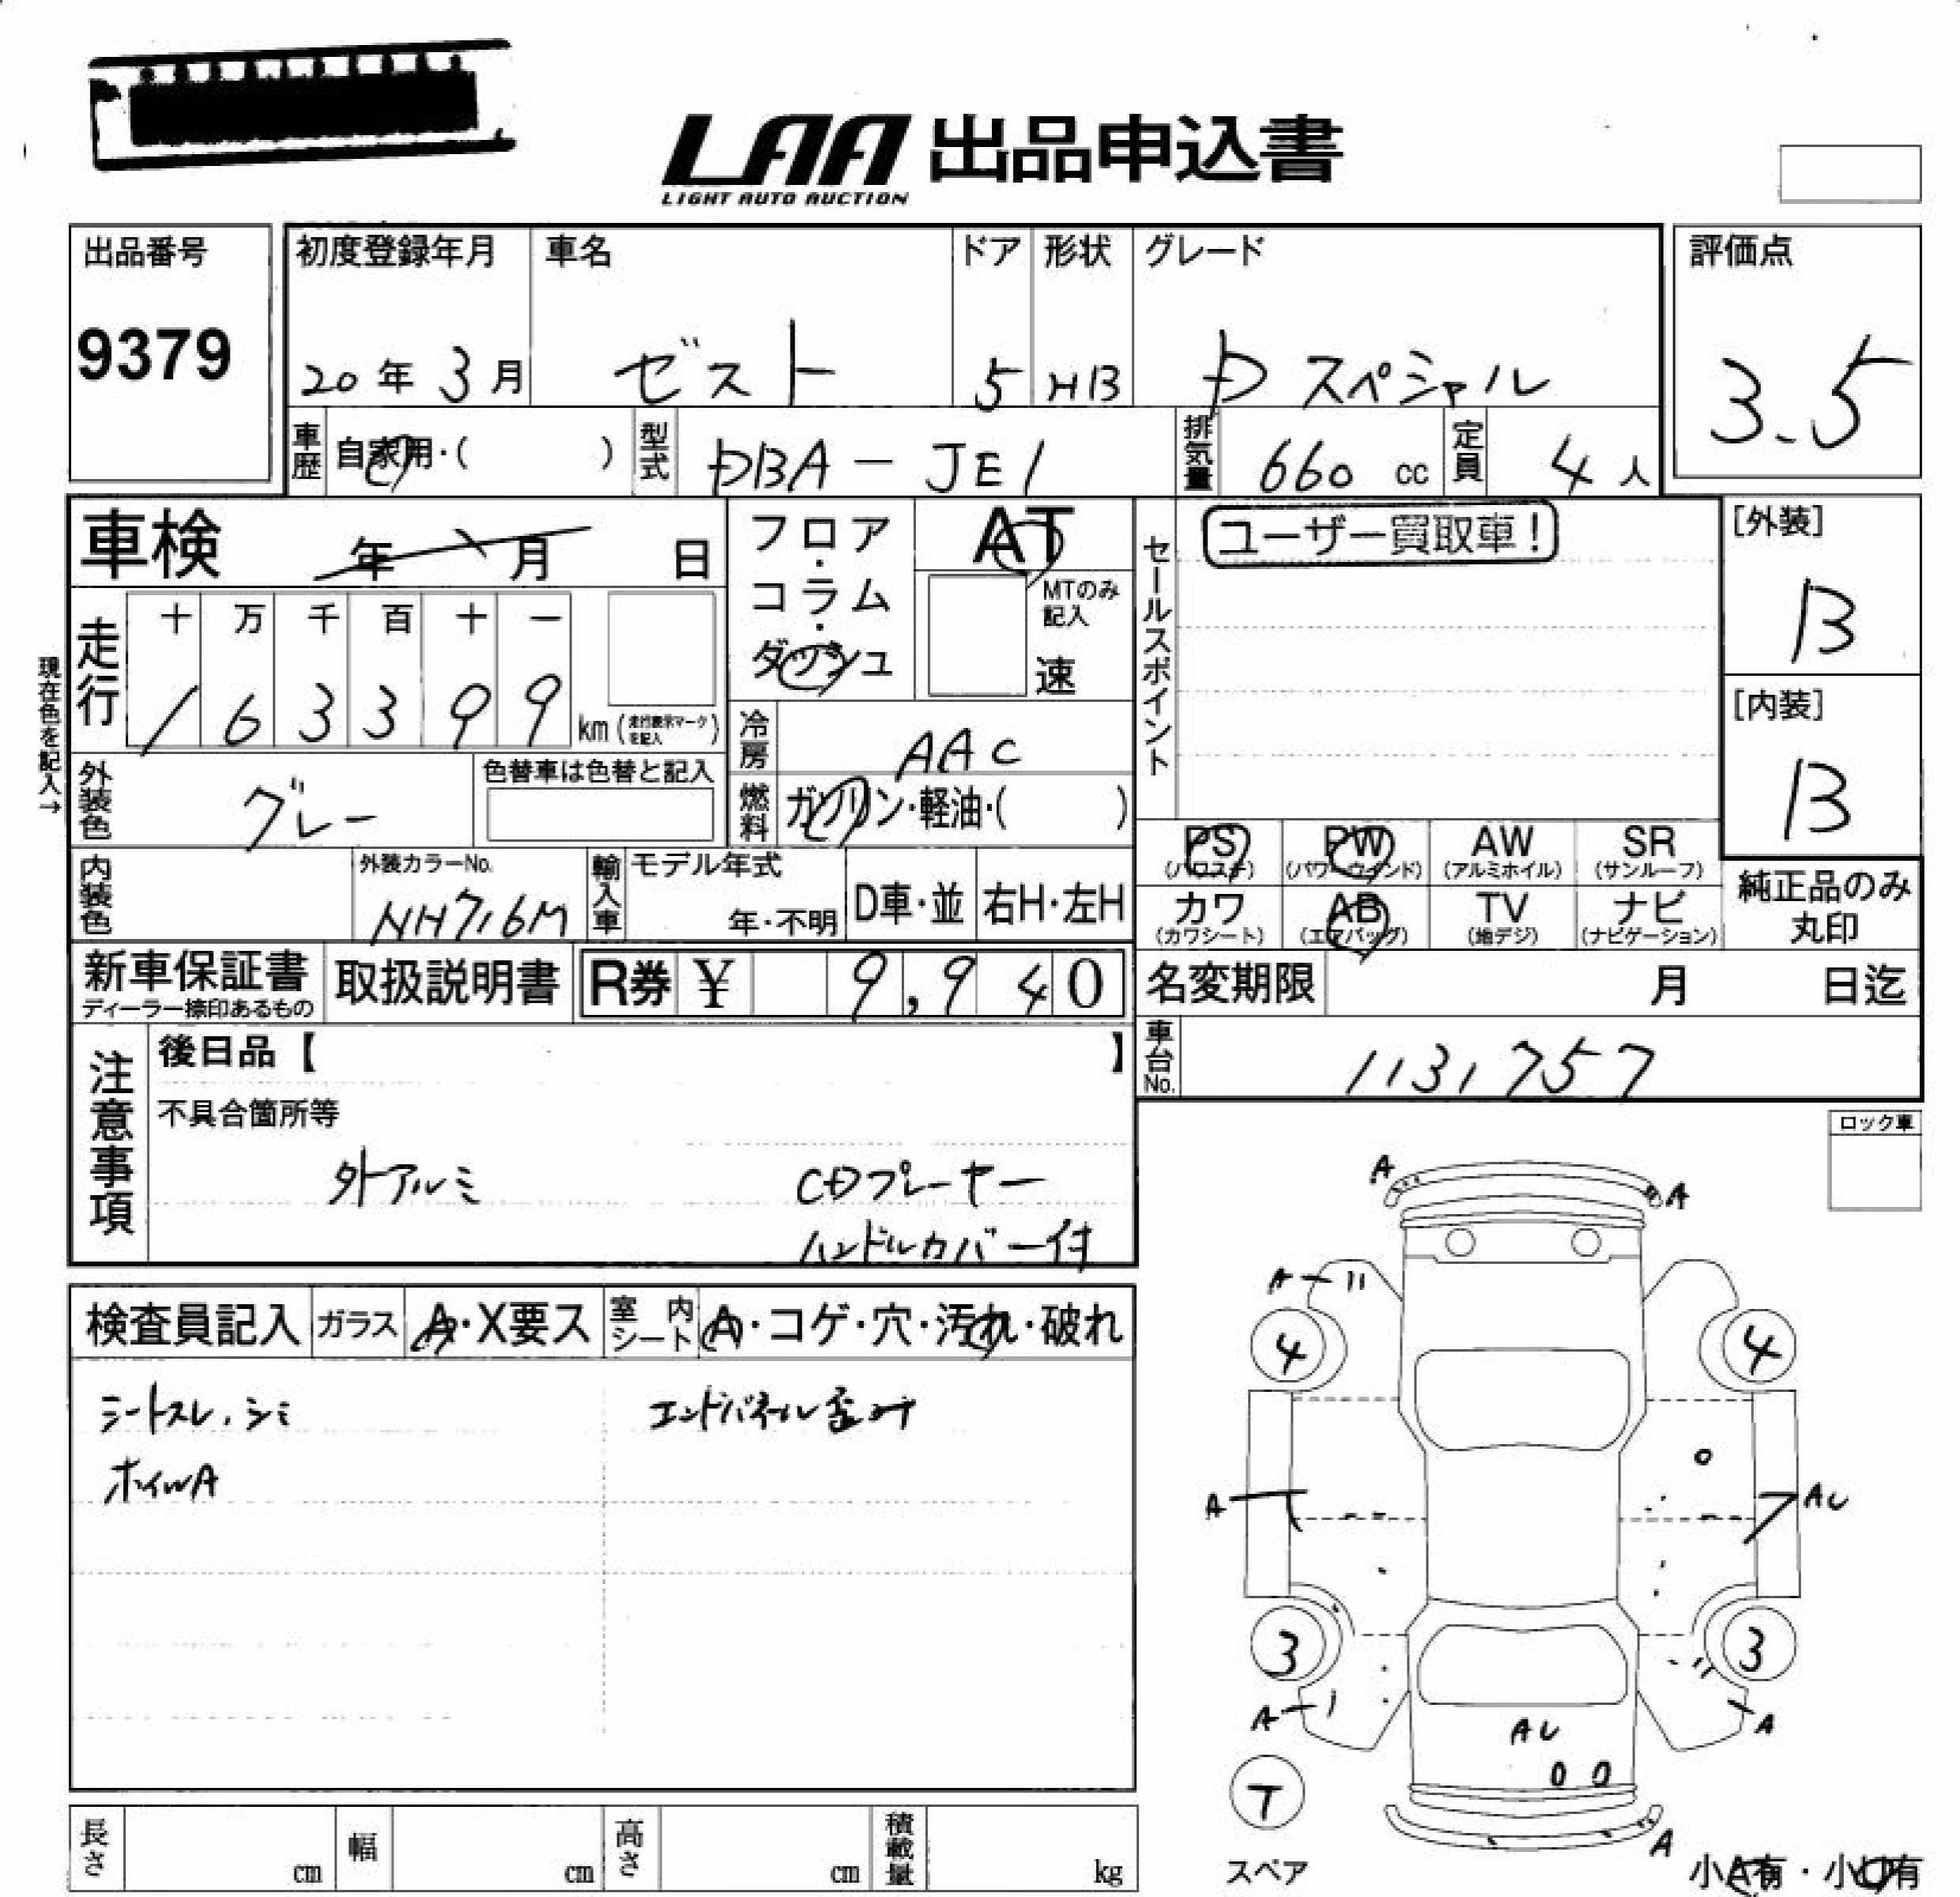 LAA 出品申込書
LIGHT AUTO AUCTION
出品番号
9379
初度登録年月
20年3月
車名
ゼスト
ドア
5
形状
HB
グレード
D スペシャル
評価点
3.5
車歴
自家用・( )
型式
DBA-JE1
排気量
660 cc
定員
4 人
車検 年 月 日
フロア・コラム・ダッシュ
AT
MTのみ記入
速
セールスポイント
ユーザー買取車!
[外装]
B
[内装]
B
現在色を記入→
走行
十 万 千 百 十 一
1 6 3 3 9 9
km (走行表示マークを記入)
冷房
AAC
外装色
グレー
色替車は色替と記入
燃料
ガソリン・軽油・( )
PS PW AW SR
(パワステ) (パワーウインド) (アルミホイル) (サンルーフ)
カワ AB TV ナビ
(カワシート) (エアバッグ) (地デジ) (ナビゲーション)
純正品のみ
丸印
内装色
外装カラーNo.
NH716M
輸入車
モデル年式
年・不明
D車・並
右H・左H
新車保証書
ディーラー捺印あるもの
取扱説明書
R券 ¥ 9,940
名変期限 月 日迄
車台No.
1131757
注意事項
後日品【 】
不具合箇所等
外アルミ CDプレーヤー
ハンドルカバー付
ロック車
検査員記入 ガラス A・X要ス 室内シート A・コゲ・穴・汚れ・破れ
シートスレ、シミ エンドパネル歪み
ホイルA
A A
A
4 4
A AU
3 3
A A
AU
T
スペア
A
小A有・小U有
長さ cm 幅 cm 高さ cm 積載量 kg